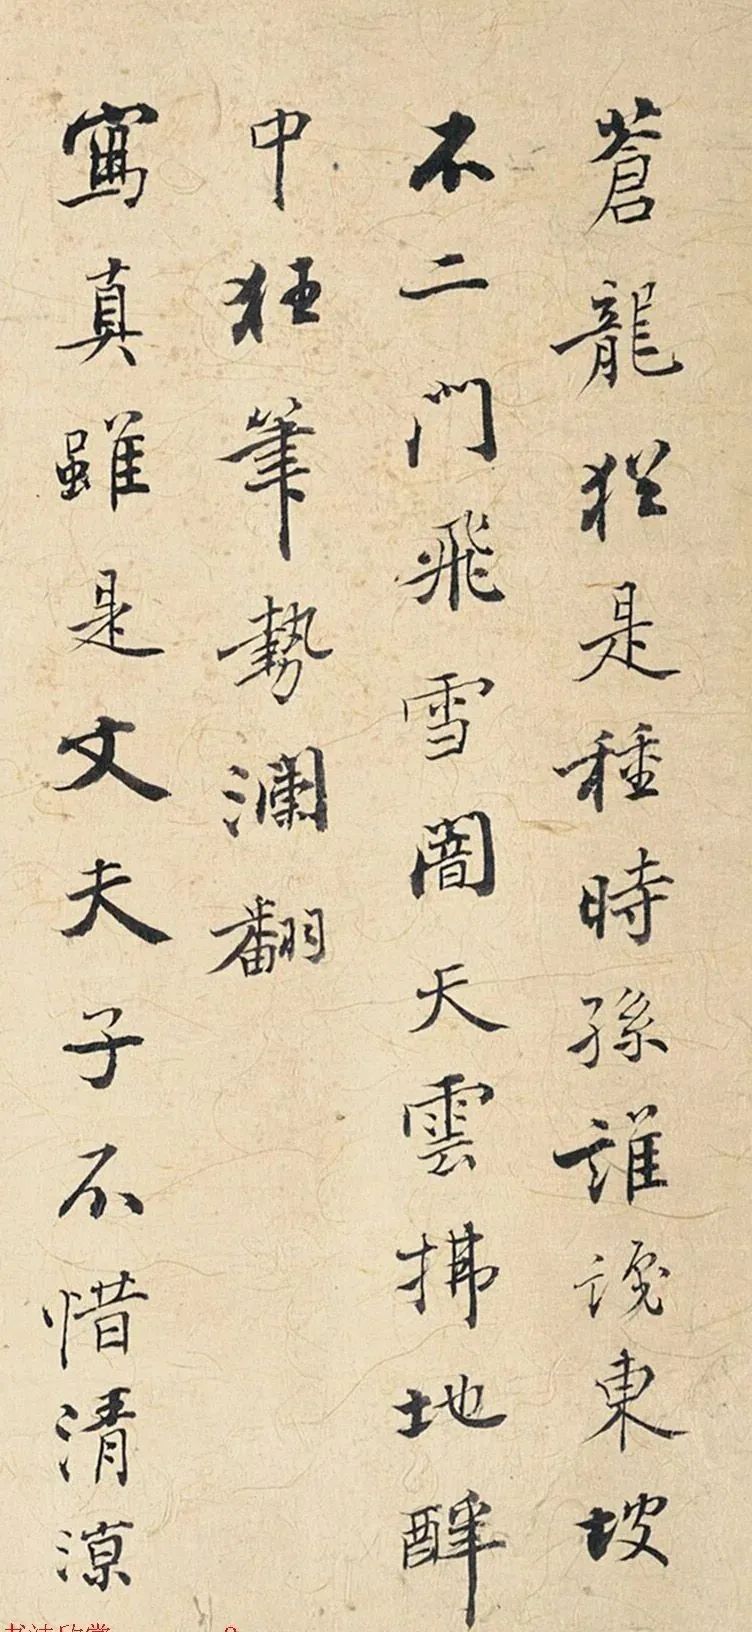 蒼龍猶是種時孫誰說東坡
不二門飛雪闇天雲拂地醉
中狂筆勢瀾翻
寫真雖是文夫子不惜清涼
书法欣赏